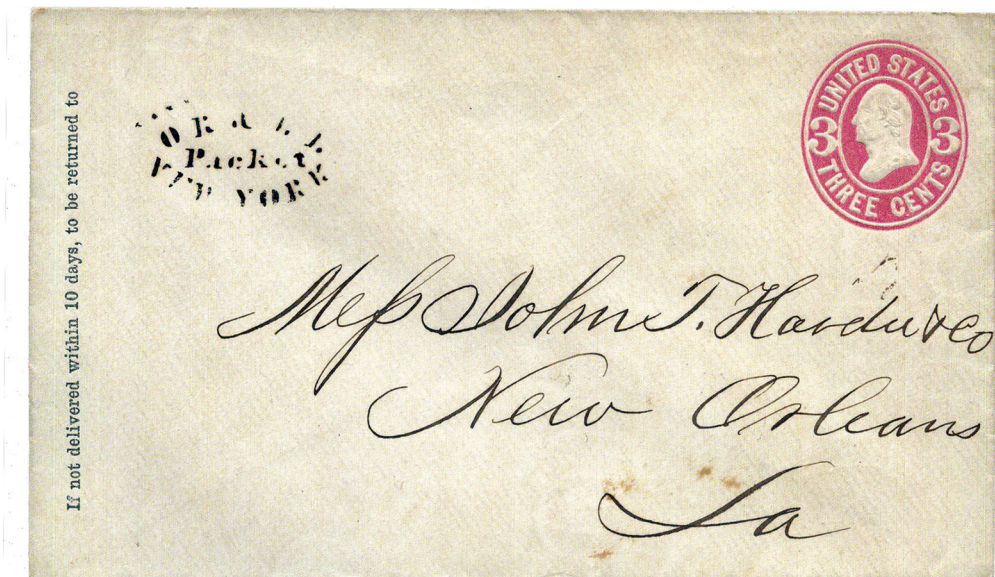 If not delivered within 10 days, to be returned to
Packet
NEW YORK
UNITED STATES
3 3
THREE CENTS
Mess John T. Hardie & Co
New Orleans
La